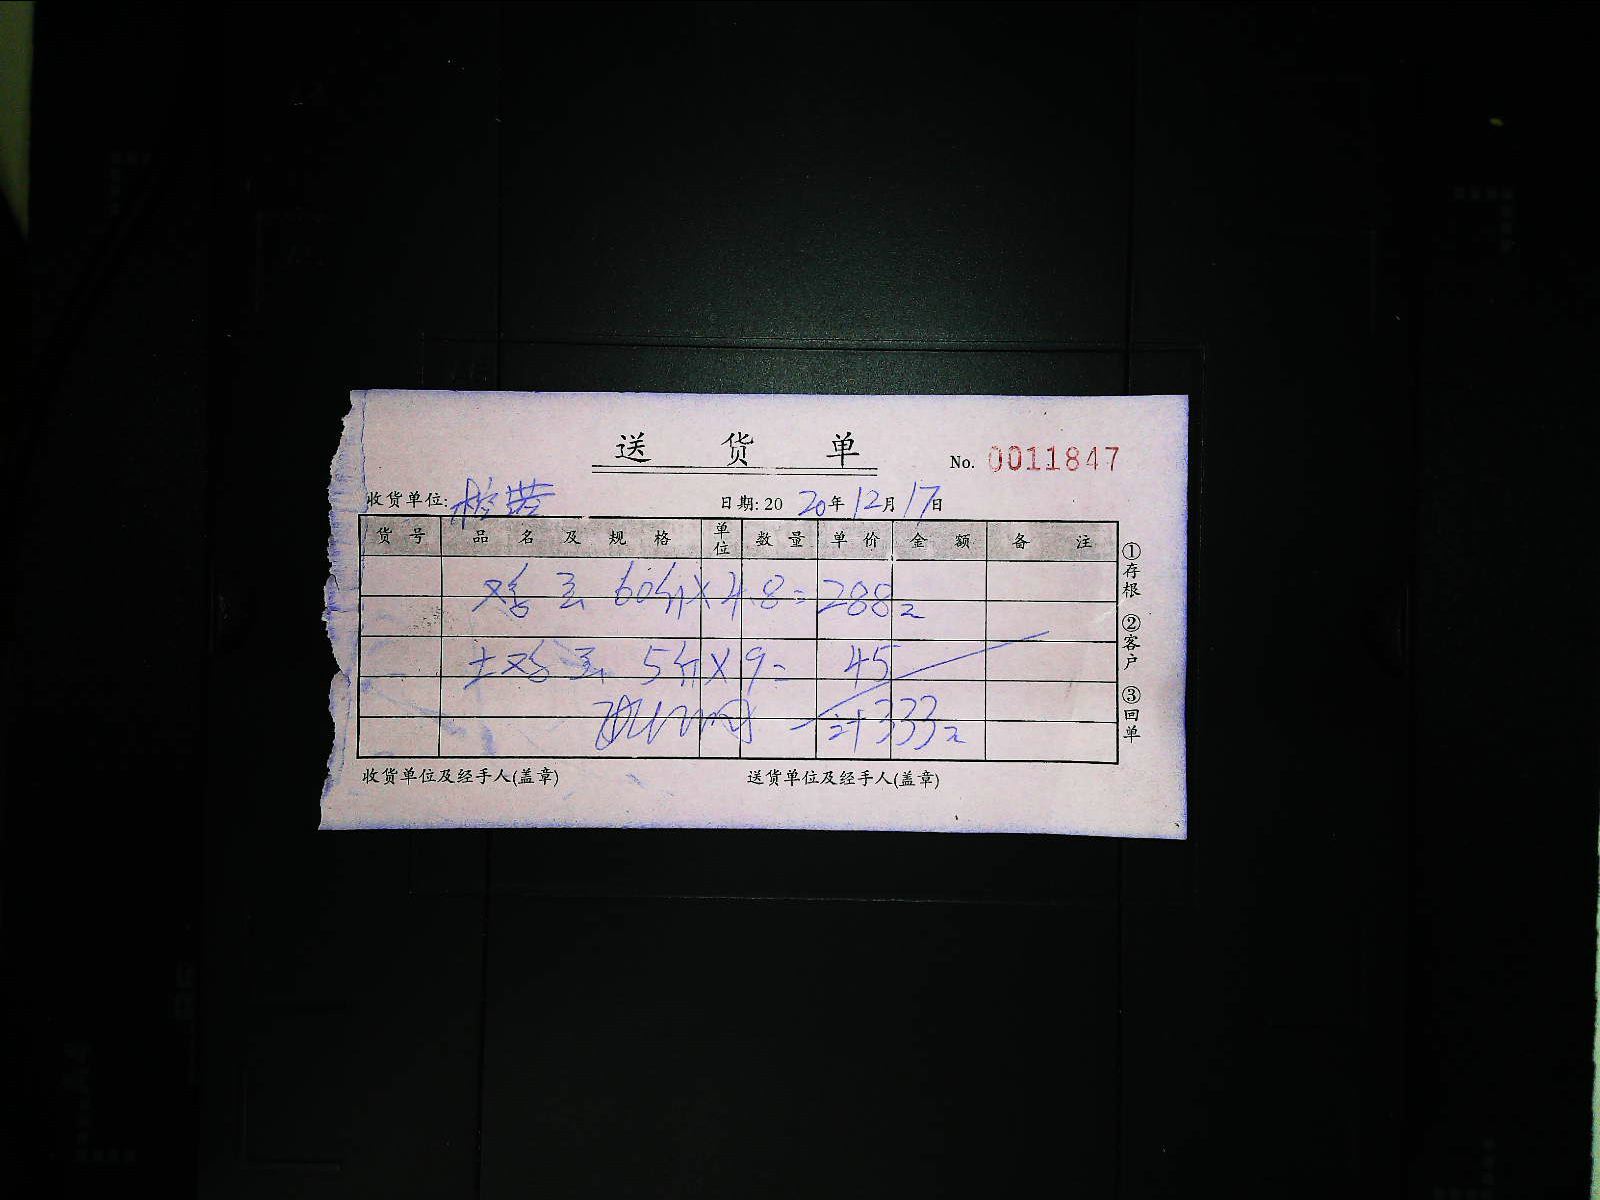 送货单 No. 0011847
收货单位: 日期: 2020年12月17日
货号 品名及规格 单位 数量 单价 金额 备注
鸡蛋 60斤×4.8=288元
土鸡蛋 5斤×9= 45
计333元
收货单位及经手人(盖章) 送货单位及经手人(盖章)
①存根 ②客户 ③回单